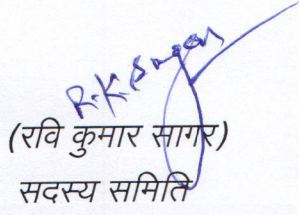 R.K. Sagar
(रवि कुमार सागर)
सदस्य समिति